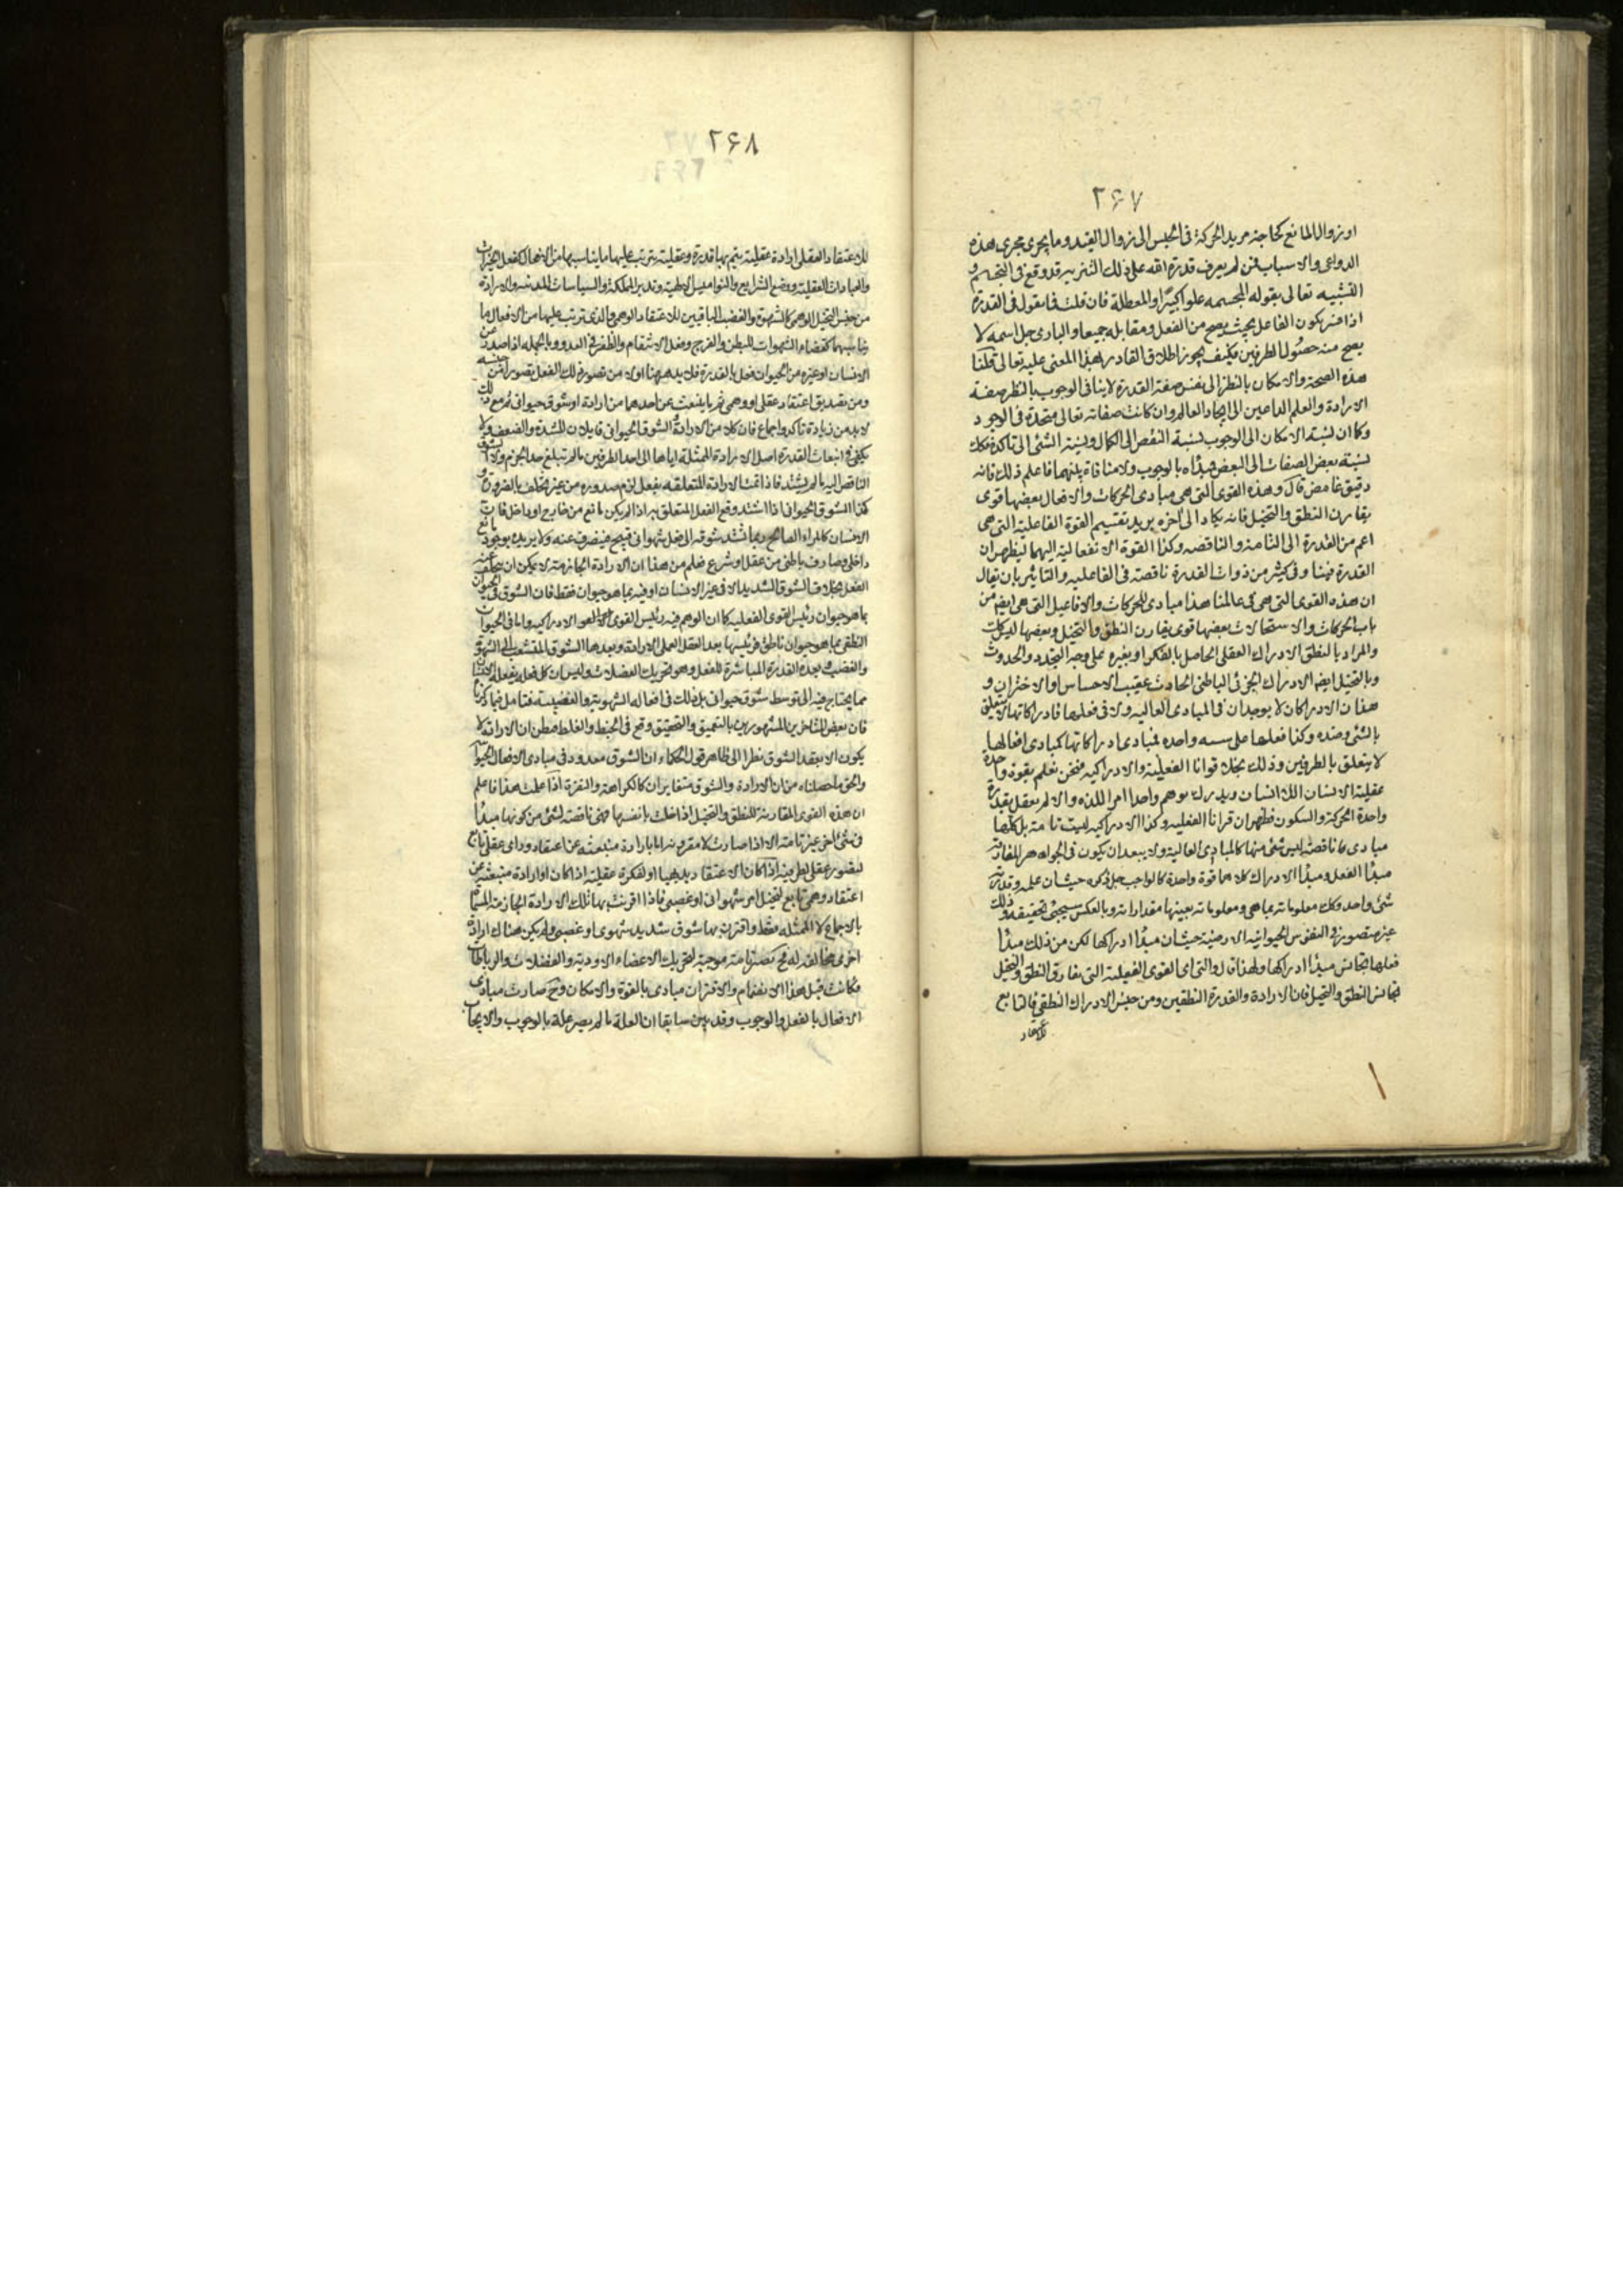 ۲۶۷
او زوال المانع كحاجة مريد الحركة فى الحبس الى زوال القيد وما يجرى مجرى هذه
الدواعى والاسباب فمن لم يعرف قدرة الله على ذلك التنزيه قد وقع فى التجسم و
التشبيه تعالى بقوله المجسمه علوا كبيرا والمعطلة فان قلت فما تقول فى القدرة
اذا فسر بكون الفاعل بحيث يصح من الفعل ومقابله جميعا والبارى جل اسمه لا
يصح منه حصول الطرفين فكيف يجوز اطلاق القادر بهذا المعنى عليه تعالى قلنا
هذه الصحة والامكان بالنظر الى نفس صفة القدرة لا ينافى الوجوب بالنظر صفة
الارادة والعلم الداعيين الى ايجاد العالم وان كانت صفاته تعالى متحدة فى الوجود
وكما ان نسبة الامكان الى الوجوب نسبة النقص الى الكمال ونسبة الشئ الى تاكده فكك
نسبة بعض الصفات الى البعض مبدأه بالوجوب ولا منافاة بينهما فاعلم ذلك فانه
دقيق غامض قال وهذه القوى التى هى مبادى الحركات والافعال بعضها قوى
يقارن النطق والتخيل فانه يكاد الى آخره يريد تقسيم القوة الفاعلية التى هى
اعم من القدرة الى التامة والناقصه وكذا القوة الانفعالية اليهما ليظهر ان
القدرة فينا وفى كثير من ذوات القدرة ناقصة فى الفاعليه والتاثير بان يقال
ان هذه القوى التى هى فى عالمنا هذا مبادى للحركات والافاعيل التى هى ايضا من
باب الحركات والاستحالات بعضها قوى يقارن النطق والتخيل وبعضها ليس كك
والمراد بالنطق الادراك العقلى الحاصل بالفكر او بغيره على وجه التجدد والحدوث
وبالتخيل ايضا الادراك الجزئى الباطنى الحادث عقيب الاحساس او الاختران و
هذان الادراكان لا يوجدان فى المبادى العاليه ولا فى فعلها فادراكاتها لا يتعلق
بالشئ وضده وكذا فعلها على سنه واحده فمبادى ادراكاتها كمبادى افعالها
لا يتعلق بالطرفين وذلك بخلاف قوانا الفعلية والادراكيه فنحن نعلم بقوة واحدة
عقلية الانسان اللا انسان ويدرك بوهم واحد امر اللذه والالم نعقل بقدرة
واحدة الحركة والسكون فظهر ان قوانا الفعليه وكذا الادراكيه ليست تامة بل كلها
مبادى ناقصة ليس شئ منها كالمبادى العالية ولا يبعد ان يكون فى الجواهر المفارقه
مبدأ الفعل ومبدأ الادراك كلاهما قوة واحدة كالواجب جل ذكره حيث ان علمه وقدرته
شئ واحد وكك معلوماته بما هى ومعلوماته بعينها مقدوراته وبالعكس سيجئ تحقيقه وذلك
غير متصور فى النفوس الحيوانية الارضية حيث ان مبدأ ادراكها لكن من ذلك مبدأ
فعلها تجانس مبدأ ادراكها ولهذا قال والتى اى القوى الفعلية التى تفارق النطق والتخيل
تجانس النطق والتخيل فان الارادة والقدرة النطقيين ومن جنس الادراك النطقى فالتابع
للاعتقاد
۲۶۸
للاعتقاد العقلى ارادة عقلية يتم بها قدرة وعقلية يترتب عليها ما يناسبها من الافعال كفعل الخيرات
والعبادات العقلية ووضع الشرايع والنواميس الالهية وتدبير المملكة والسياسات المدنيه والارادة
من جنس التخيل الوهمى كالشهوة والغضب الباقيين للاعتقاد الوهمى والذى ترتب عليها من الافعال ما
يناسبهما كقضاء الشهوات للبطن والفرج وفعل الانتقام والظفر فى العدو وبالجمله اذا صدر عن
الانسان او غيره من الحيوان فعل بالقدرة فلا بد ههنا اولا من تصور ذلك الفعل بتصور من جنسه
ومن تصديق اعتقاد عقلى او وهمى ثم ما ينبعث عن احدهما من ارادة او شوق حيوانى ثم مع ذلك
لا بد من زيادة تاكد واجماع فان كلا من الارادة والشوق الحيوانى قابلان للشدة والضعف ولا
يكفى فى انبعاث القدرة اصل الارادة الممثلة اياها الى احد الطرفين ما لم تبلغ حد الجزم ولا الشوق
الناقص اليه ما لم يشتد فاذا تمت الارادة المتعلقه بفعل لزم صدوره من غير تخلف بالضرورة و
كذا الشوق الحيوانى اذا اشتد وقع الفعل المتعلق به اذا لم يكن مانع من خارج او داخل فان
الانسان كالمراء الصالح ربما اشتد شوقه الى فعل شهوانى قبيح فينصرف عنه ولا يريده بوجود مانع
داخلى وصارف باطنى من عقل او شرع فعلم من هذا ان الارادة الجازمة لا يمكن ان يتخلف عنه
الفعل بخلاف الشوق الشديد الا فى غير الانسان او فيه بما هو حيوان فقط فان الشوق فى الحيوان
بما هو حيوان رئيس القوى الفعليه كما ان الوهم فيه رئيس القوى الادراكيه واما فى الحيوان
النطقى بما هو حيوان ناطق فرئيسها بعد العقل العملى الارادة وبعدها الشوق المنشعب الى الشهوة
والغضب وبعده القدرة المباشرة للفعل وهو تحريك العضلات وليس ان كل فعل يفعله الانسان
مما يحتاج فيه الى توسط شوق حيوانى بل ذلك فى افعاله الشهوية والغضبية فتامل فيما ذكرنا
فان بعض المتاخرين المشهورين بالتعميق والتحقيق وقع فى الخبط والغلط فظن ان الارادة لا
يكون الا بعد الشوق نظرا الى ظاهر قول الحكماء ان الشوق معدود فى مبادى الافعال الحيوانيه
والحق ما حصلناه من ان الارادة والشوق متغايران كالكراهة والنفرة اذا علمت هذا فاعلم
ان هذه القوى المقارنة للنطق والتخيل اذا خلت بانفسها فهى ناقصة لشئ من كونها مبدأ
وشئ اخر غير تامة الا اذا صارت مقرونه اما بارادة منبعثه عن اعتقاد وراى عقلى تابع
لتصور عقلى لطرفيه اذا كان الاعتقاد بديهيا او لفكرة عقلية اذا كان او ارادة منبعثه عن
اعتقاد وهمى تابع لتخيل امر شهوانى او غضبى فاذا اقترنت بها تلك الارادة الجازمة المسماة
بالاجماع لا الممثله فقط واقترن بها شوق شديد شهوى او غضبى ولم يكن هناك ارادة
اخرى مخالفه له فح يصير تامة موجبة لتحريك الاعضاء الادوية والعضلات والرباطات
فكانت قبل هذا الانضمام والاقتران مبادى بالقوة والامكان وح صارت مبادى
الافعال بالفعل والوجوب وقد بين سابقا ان العلة ما لم يصر علة بالوجوب والايجاب